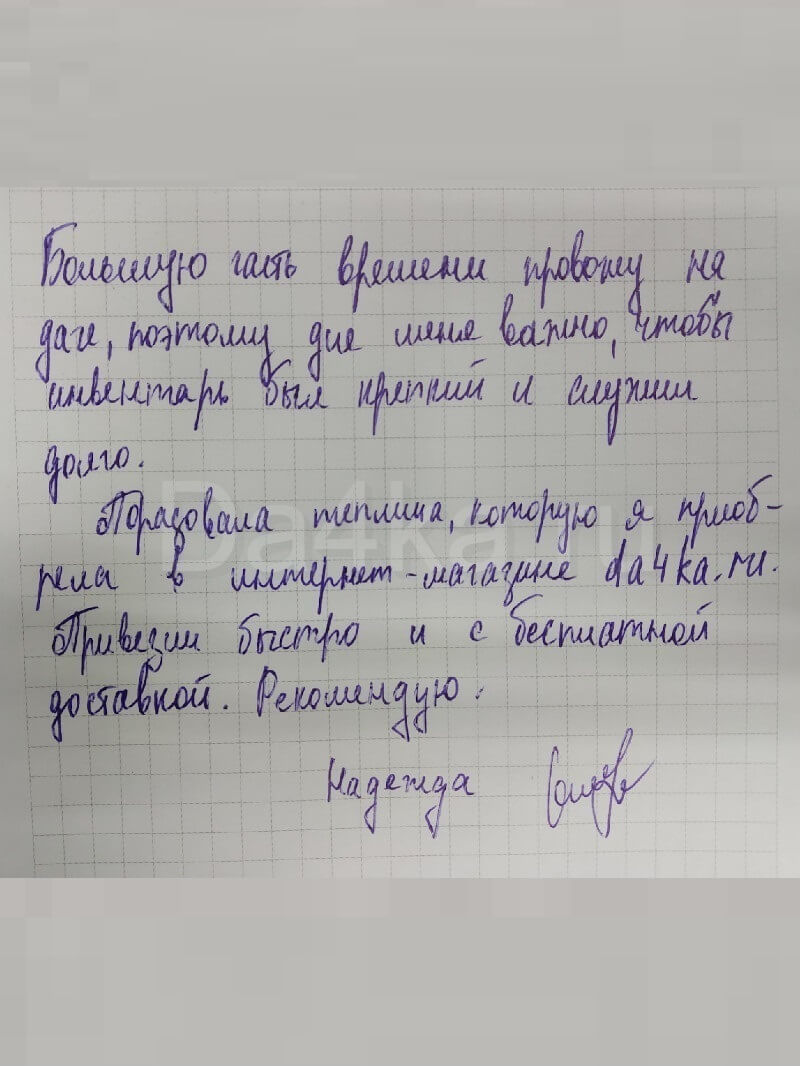 Большую часть времени провожу на
даче, поэтому для меня важно, чтобы
инвентарь был крепкий и служил
долго.
Порадовала теплица, которую я приоб-
рела в интернет-магазине da4ka.ru.
Привезли быстро и с бесплатной
доставкой. Рекомендую.
Надежда
Da4ka.ru